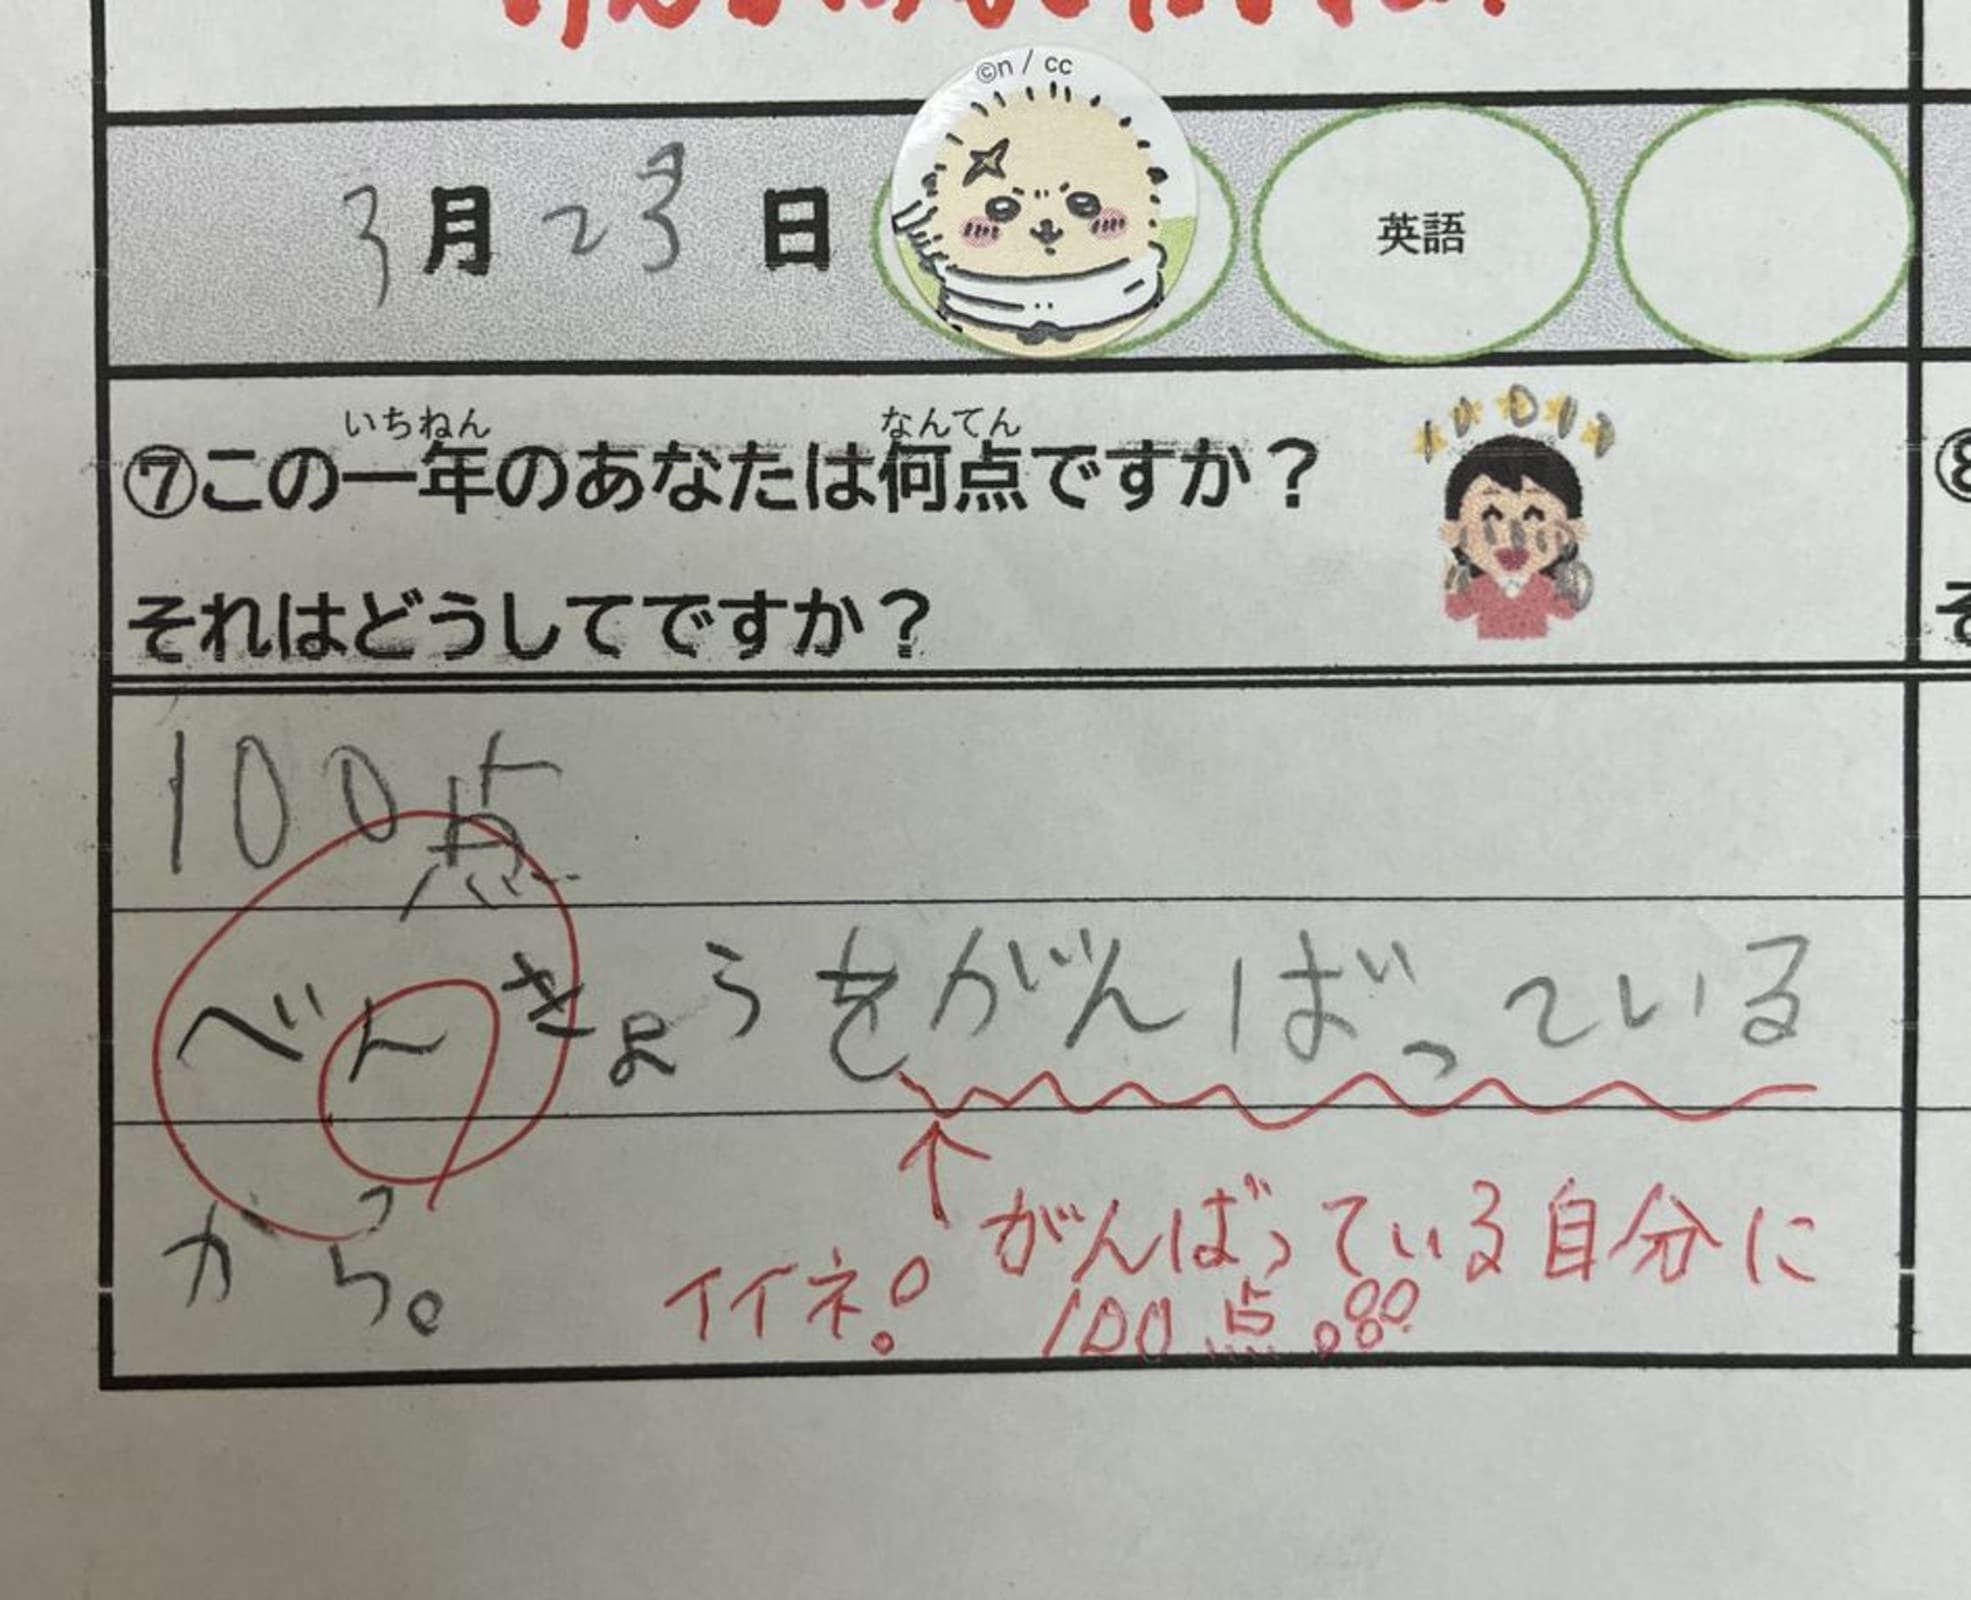 ©n / cc
3月23日
英語
いちねん なんてん
⑦この一年のあなたは何点ですか？
それはどうしてですか？
100点
べんきょうをがんばっている
から。
↑がんばっている自分に
イイネ！ 100点。